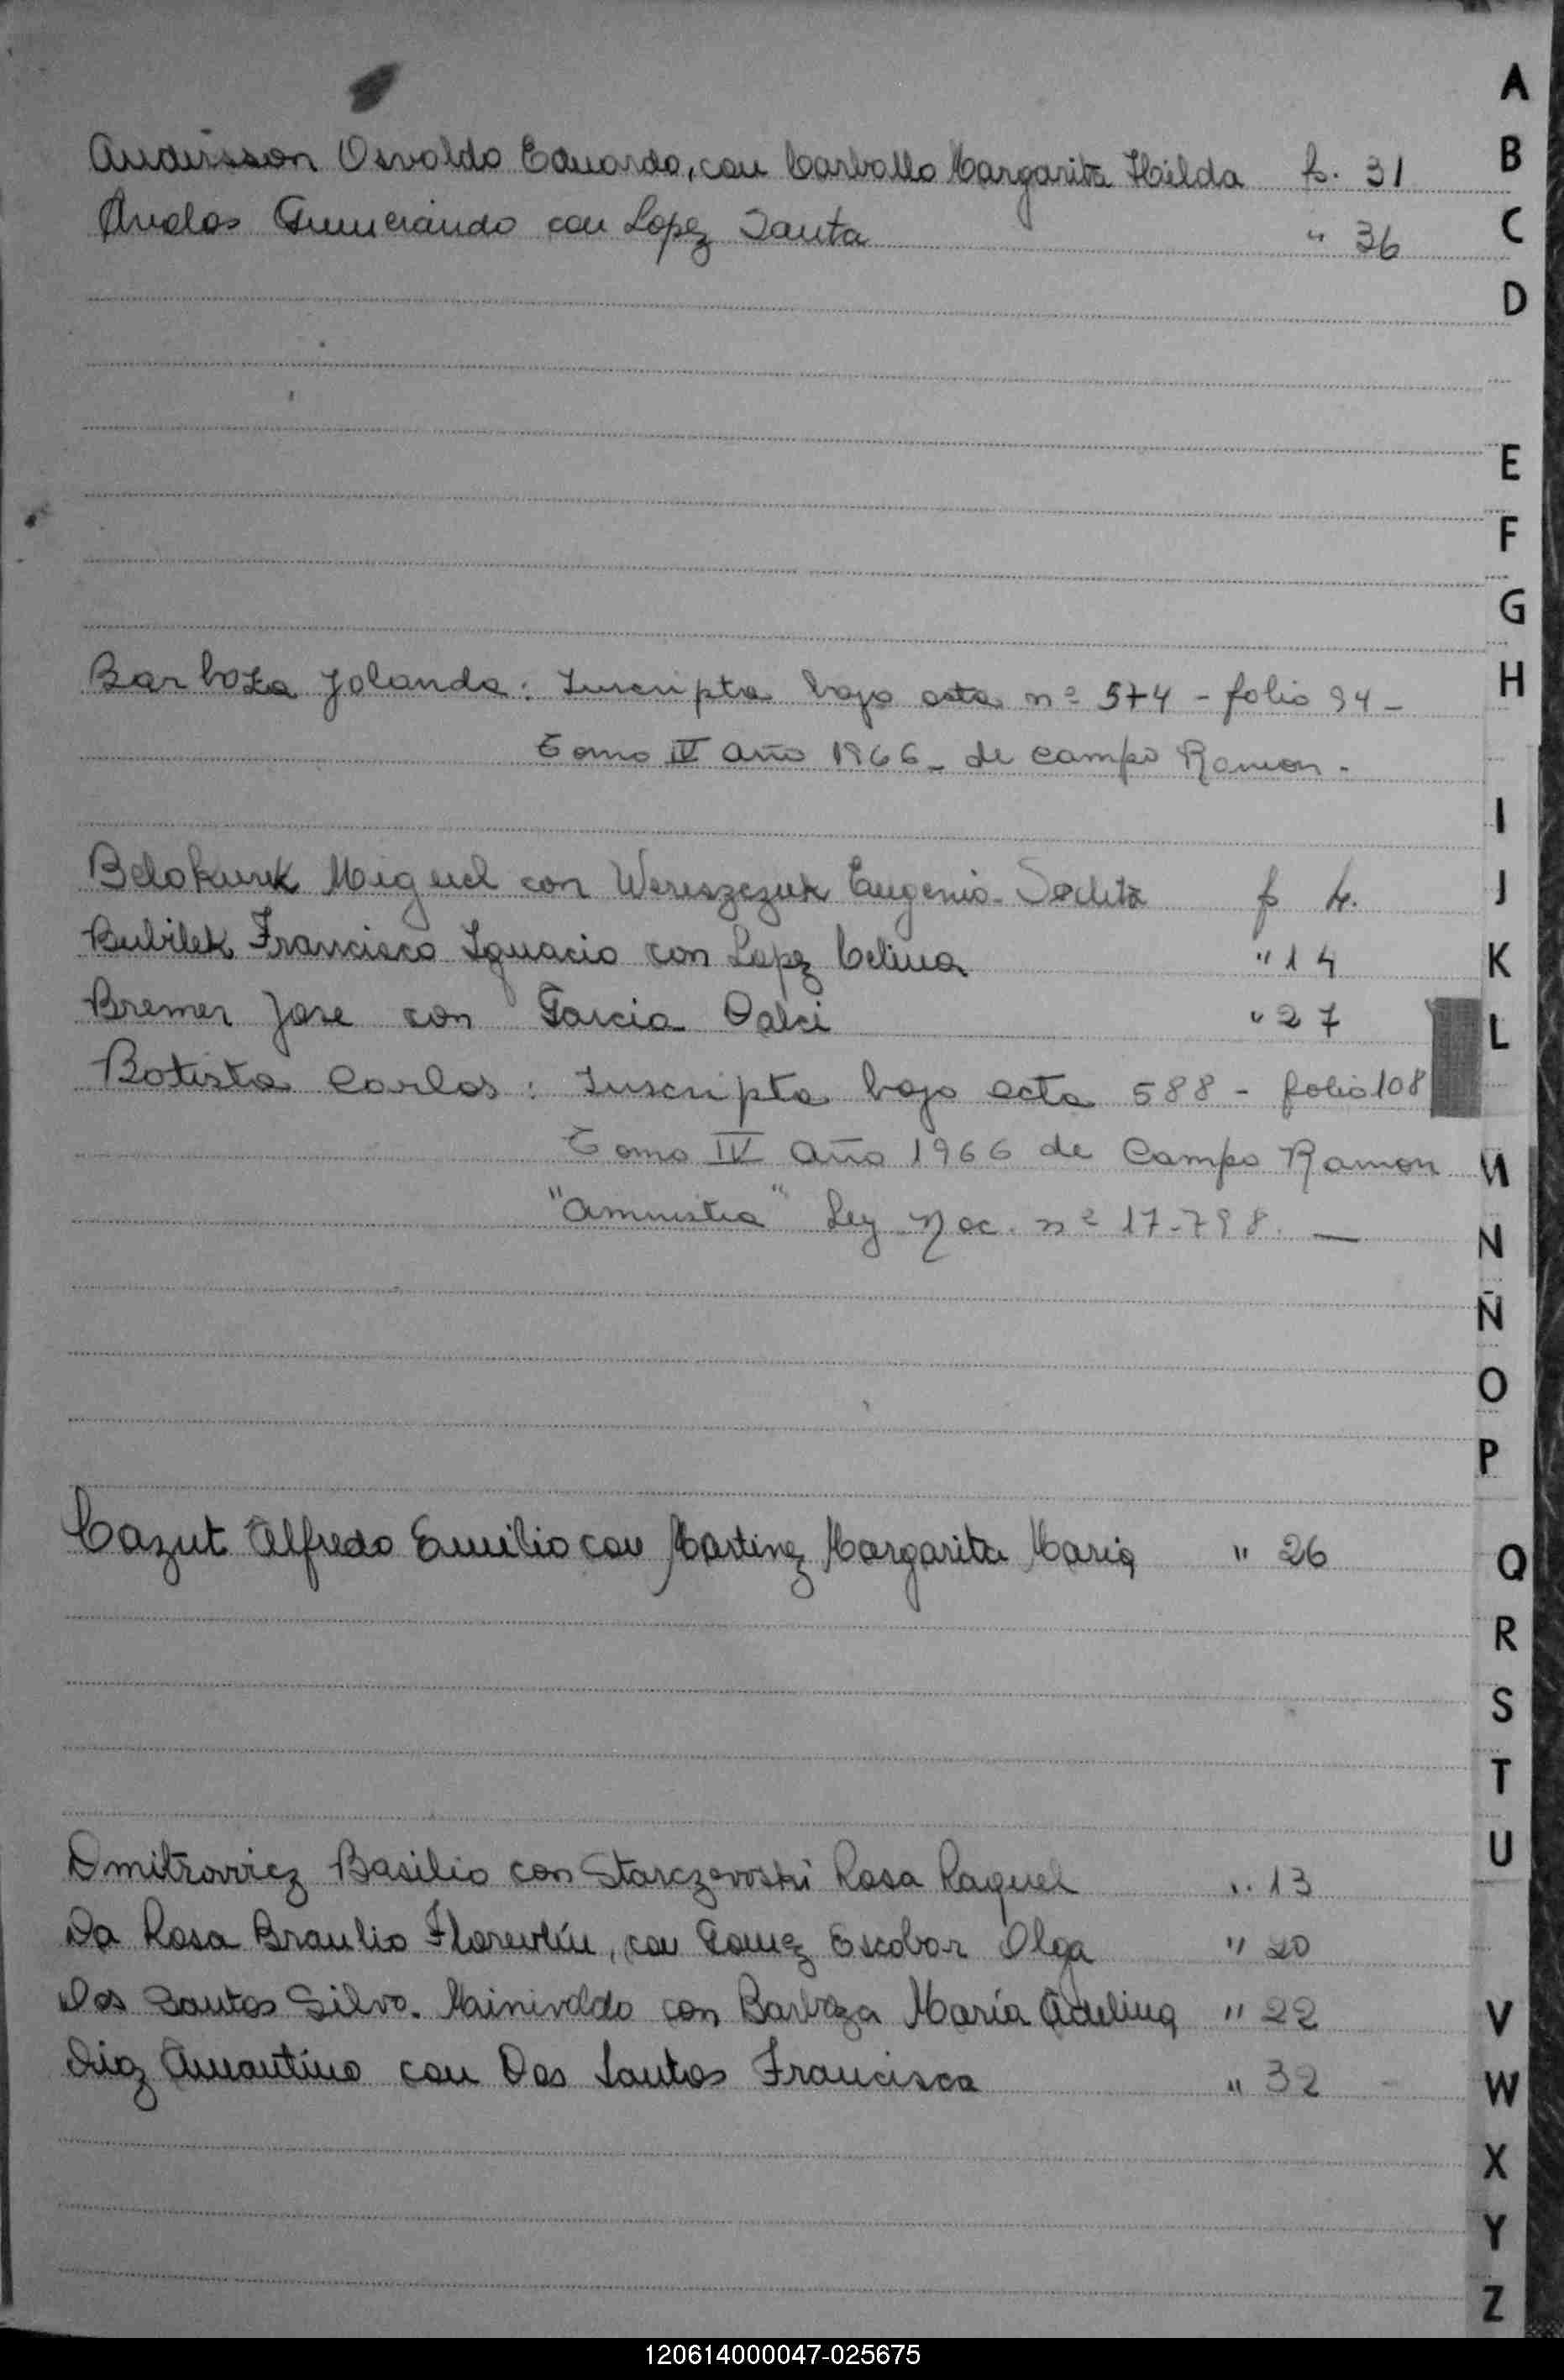 Andersson Osvaldo Eduardo, con Carballo Margarita Hilda f. 31
Avalos Gumercindo con Lopez Santa " 36
Barboza Jolanda: Inscripta bajo acta nº 574 - folio 94 -
Tomo IV Año 1966 - de Campo Ramon.
Belokurek Miguel con Wereszczuk Eugenia f 4.
Bubilek Francisco Ignacio con Lopez Celina " 14
Bremer Jose con Garcia Dalci " 27
Batista Carlos: Inscripta bajo acta 588 - folio 108
Tomo IV Año 1966 de Campo Ramon
"Amnistia" Ley Nac. nº 17.798. —
Cazut Alfredo Emilio con Martinez Margarita Maria " 26
Dmitrovicz Basilio con Starczevoski Rosa Raquel " 13
Da Rosa Braulio Florentín, con Gomez Escobar Olga " 20
Dos Santos Silva. Mainivaldo con Barboza María Adelina " 22
Diaz Amantino con Dos Santos Francisca " 32
A
B
C
D
E
F
G
H
I
J
K
L
M
N
Ñ
O
P
Q
R
S
T
U
V
W
X
Y
Z
120614000047-025675